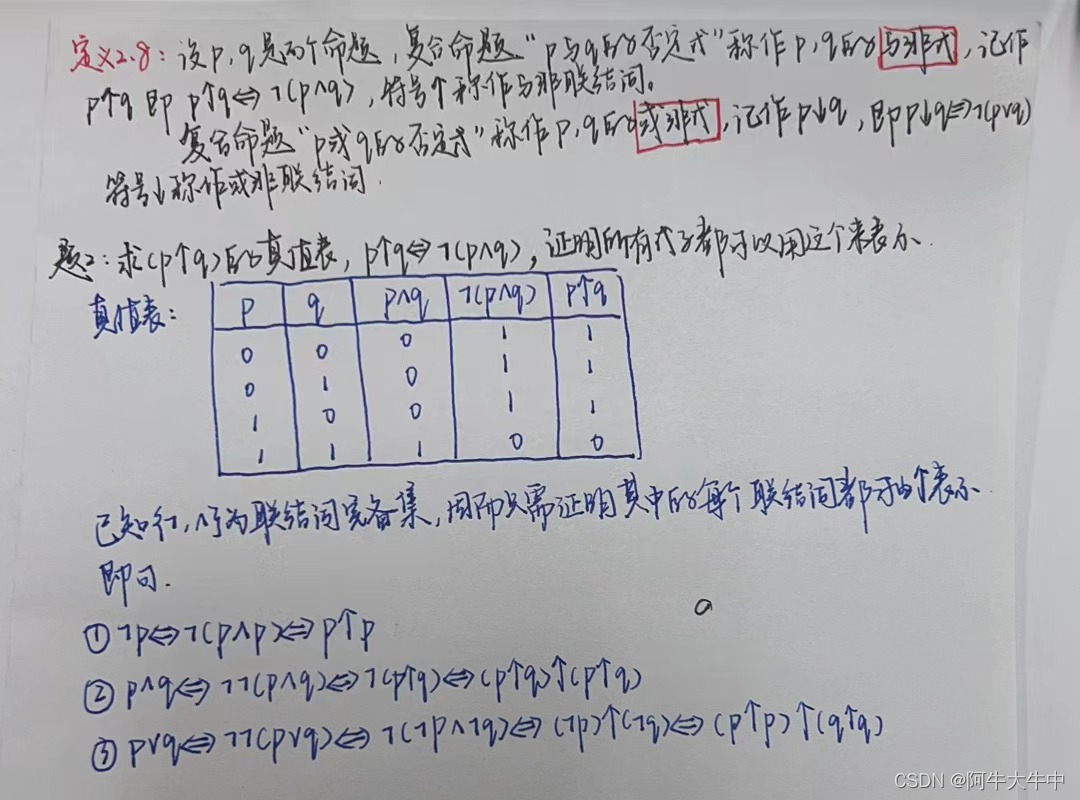 定义2.8：设p,q是两个命题,复合命题"p与q的否定式"称作p,q的与非式,记作
p↑q 即 p↑q⇔¬(p∧q),符号↑称作与非联结词。
复合命题"p或q的否定式"称作p,q的或非式,记作p↓q,即p↓q⇔¬(p∨q)
符号↓称作或非联结词.
题2:求(p↑q)的真值表,p↑q⇔¬(p∧q),证明所有式子都可以用这个来表示.
真值表：
p q p∧q ¬(p∧q) p↑q
0 0 0 1 1
0 1 0 1 1
1 0 0 1 1
1 1 1 0 0
已知{¬,∧}为联结词完备集,因而只需证明其中的每个联结词都可由↑表示
即可.
① ¬p⇔¬(p∧p)⇔p↑p
② p∧q⇔¬¬(p∧q)⇔¬(p↑q)⇔(p↑q)↑(p↑q)
③ p∨q⇔¬¬(p∨q)⇔¬(¬p∧¬q)⇔(¬p)↑(¬q)⇔(p↑p)↑(q↑q)
CSDN @阿牛大牛中